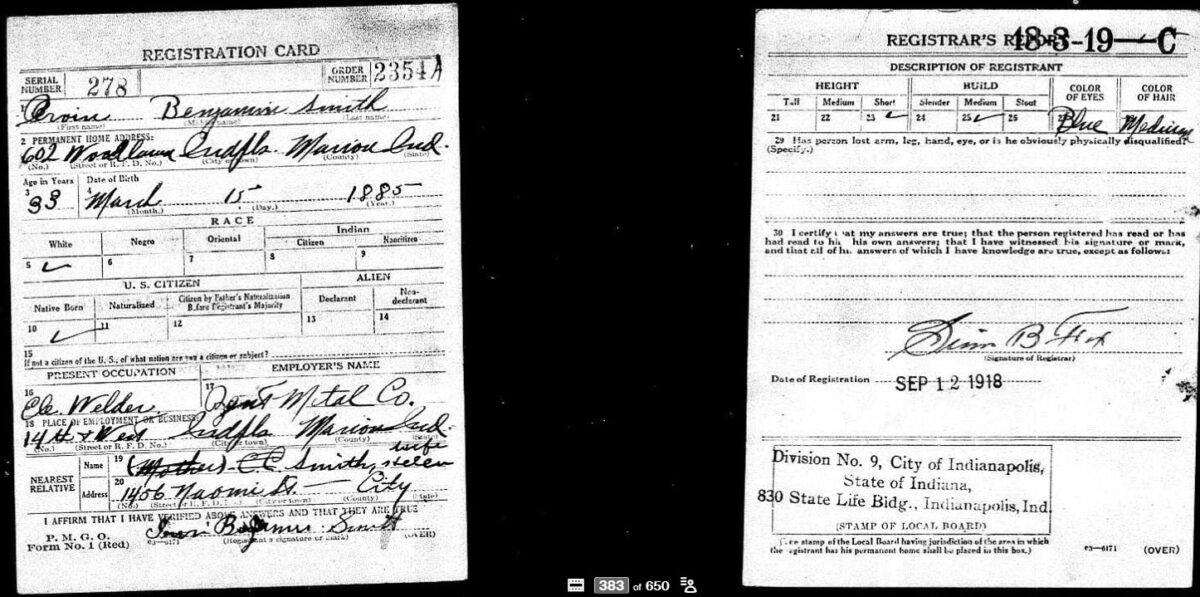 REGISTRATION CARD
SERIAL NUMBER 278 ORDER NUMBER 2354 A
1 Benjamin Smith
(First name) (Middle name) (Last name)
2 PERMANENT HOME ADDRESS:
602 Woodlawn Indpls. Marion Ind.
(No.) (Street or R. F. D. No.) (City or town) (County) (State)
Age in Years Date of Birth
3 33 4 March 15 1885
(Month.) (Day.) (Year.)
RACE
White Negro Oriental Indian
Citizen Noncitizen
5 ✓ 6 7 8 9
U. S. CITIZEN ALIEN
Native Born Naturalized Citizen by Father's Naturalization Before Registrant's Majority Declarant Non-declarant
10 ✓ 11 12 13 14
15
If not a citizen of the U. S., of what nation are you a citizen or subject?
PRESENT OCCUPATION EMPLOYER'S NAME
16 Ele. Welder 17 Metal Co.
18 PLACE OF EMPLOYMENT OR BUSINESS:
14th & West Indpls. Marion Ind.
(No.) (Street or R. F. D. No.) (City or town) (County) (State)
wife
NEAREST RELATIVE Name 19 (Mother) Smith, Helen
Address 20 1456 Naomi St. — City
(No.) (Street or R. F. D. No.) (City or town) (County) (State)
I AFFIRM THAT I HAVE VERIFIED ABOVE ANSWERS AND THAT THEY ARE TRUE
P. M. G. O.
Form No. 1 (Red) 03—6171 (Registrant's signature or mark) (OVER)
Smith
REGISTRAR'S REPORT 18-3-19—C
DESCRIPTION OF REGISTRANT
HEIGHT BUILD COLOR OF EYES COLOR OF HAIR
Tall Medium Short Slender Medium Stout
21 22 23 ✓ 24 25 ✓ 26 27 Blue Medium
29 Has person lost arm, leg, hand, eye, or is he obviously physically disqualified?
(Specify.)
30 I certify that my answers are true; that the person registered has read or has
had read to him his own answers; that I have witnessed his signature or mark,
and that all of his answers of which I have knowledge are true, except as follows:
(Signature of Registrar)
Date of Registration SEP 12 1918
Division No. 9, City of Indianapolis,
State of Indiana,
830 State Life Bldg., Indianapolis, Ind.
(STAMP OF LOCAL BOARD)
(The stamp of the Local Board having jurisdiction of the area in which
the registrant has his permanent home shall be placed in this box.)
03—6171 (OVER)
383 of 650